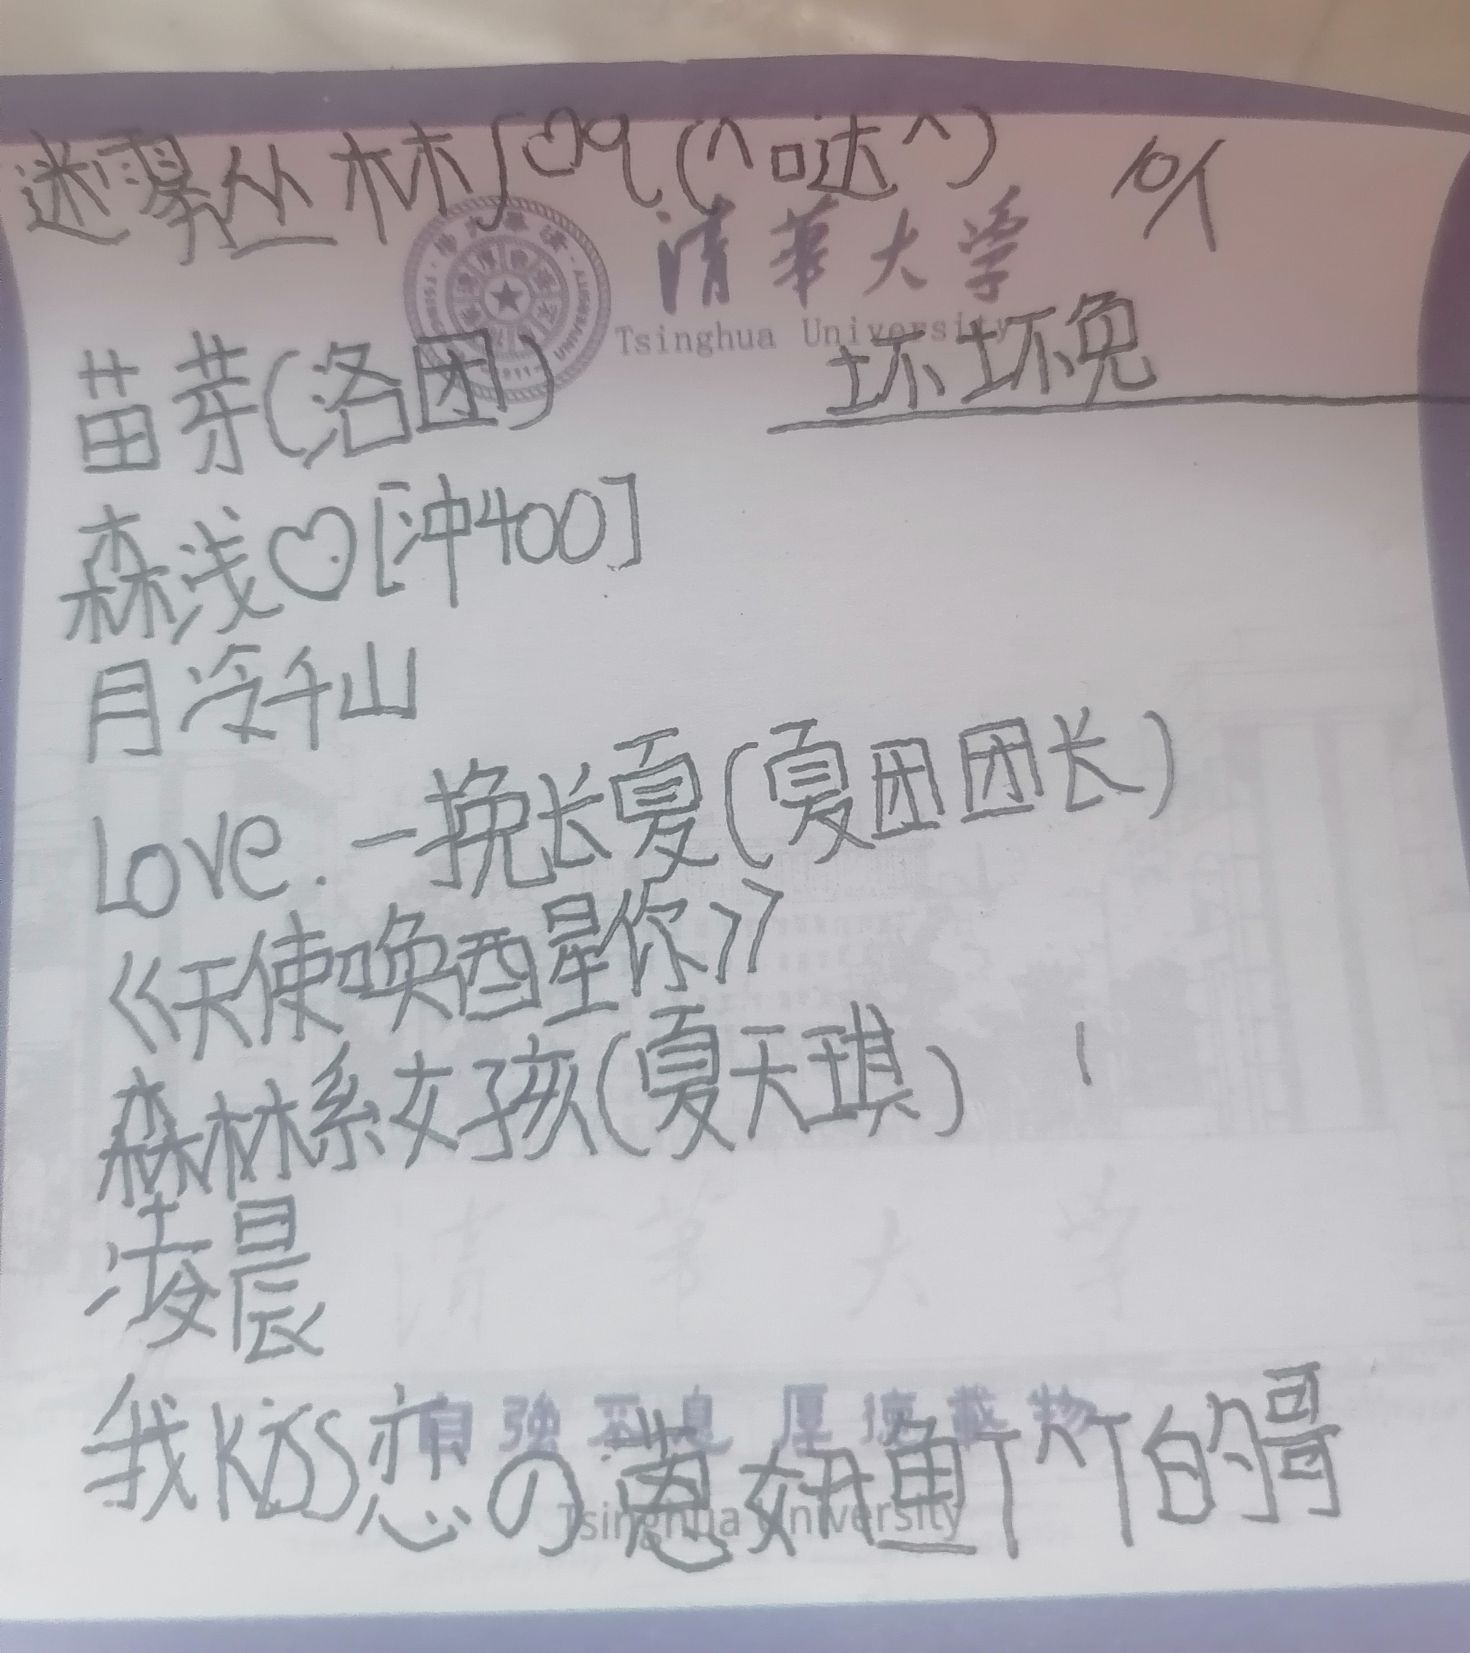 迷雾丛林 (^哒^) 10人
清華大学
Tsinghua University
苗芽(洛团) 坏坏兔
森浅♡[冲400]
月冷千山
Love.一挽长夏(夏团团长)
《天使唤酉星你》
森林系女孩(夏天琪)
凌晨
自強不息 厚德載物
我kiss恋の葱妞鱼丁丁的哥
Tsinghua University